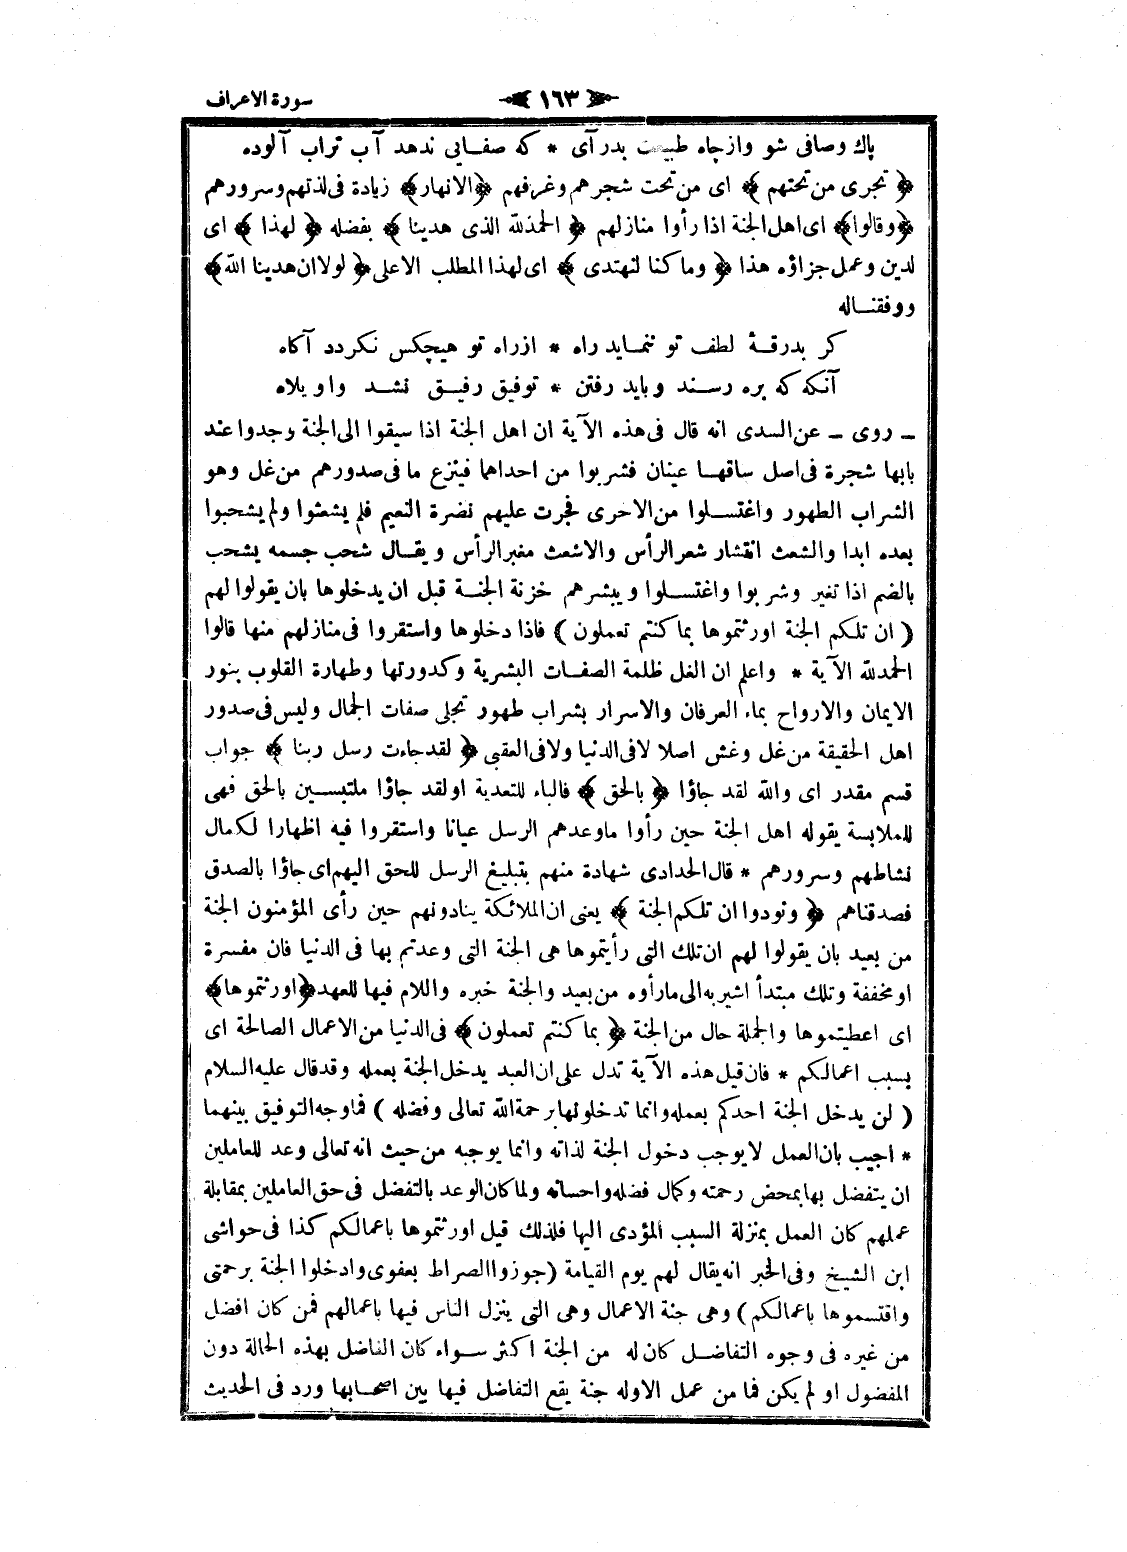 سورة الاعراف ١٦٣
پاك وصافى شو وازچاه طبيعت بدرآى * كه صفايى ندهد آب تراب آلوده
﴿ تجرى من تحتهم ﴾ اى من تحت شجرهم وغرفهم ﴿الانهار﴾ زيادة فى لذتهم وسرورهم
﴿وقالوا﴾ اى اهل الجنة اذا رأوا منازلهم ﴿ الحمدلله الذى هدينا ﴾ بفضله ﴿ لهذا ﴾ اى
لدين وعمل جزاؤه هذا ﴿ وما كنا لنهتدى ﴾ اى لهذا المطلب الاعلى ﴿ لولا ان هدينا الله﴾
ووفقناله
كر بدرقۀ لطف تو ننمايد راه * ازراه تو هيچكس نكردد آكاه
آنكه كه بره رسند وبايد رفتن * توفيق رفيق نشد واويلاه
ـ روى ـ عن السدى انه قال فى هذه الآية ان اهل الجنة اذا سيقوا الى الجنة وجدوا عند
بابها شجرة فى اصل ساقها عينان فشربوا من احداهما فينزع ما فى صدورهم من غل وهو
الشراب الطهور واغتسلوا من الاخرى فجرت عليهم نضرة النعيم فلم يشعثوا ولم يشحبوا
بعده ابدا والشعث انتشار شعر الرأس والاشعث مغبر الرأس ويقال شحب جسمه يشحب
بالضم اذا تغير وشربوا واغتسلوا ويبشرهم خزنة الجنة قبل ان يدخلوها بان يقولوا لهم
( ان تلكم الجنة اورثتموها بما كنتم تعملون ) فاذا دخلوها واستقروا فى منازلهم منها قالوا
الحمدلله الآية * واعلم ان الغل ظلمة الصفات البشرية وكدورتها وطهارة القلوب بنور
الايمان والارواح بماء العرفان والاسرار بشراب طهور تجلى صفات الجمال وليس فى صدور
اهل الحقيقة من غل وغش اصلا لا فى الدنيا ولا فى العقبى ﴿ لقد جاءت رسل ربنا ﴾ جواب
قسم مقدر اى والله لقد جاؤا ﴿ بالحق ﴾ فالباء للتعدية او لقد جاؤا ملتبسين بالحق فهى
للملابسة يقوله اهل الجنة حين رأوا ما وعدهم الرسل عيانا واستقروا فيه اظهارا لكمال
نشاطهم وسرورهم * قال الحدادى شهادة منهم بتبليغ الرسل للحق اليهم اى جاؤا بالصدق
فصدقناهم ﴿ ونودوا ان تلكم الجنة ﴾ يعنى ان الملائكة ينادونهم حين رأى المؤمنون الجنة
من بعيد بان يقولوا لهم ان تلك التى رأيتموها هى الجنة التى وعدتم بها فى الدنيا فان مفسرة
او مخففة وتلك مبتدأ اشير به الى ما رأوه من بعيد والجنة خبره واللام فيها للعهد ﴿اورثتموها﴾
اى اعطيتموها والجملة حال من الجنة ﴿ بما كنتم تعملون ﴾ فى الدنيا من الاعمال الصالحة اى
بسبب اعمالكم * فان قيل هذه الآية تدل على ان العبد يدخل الجنة بعمله وقد قال عليه السلام
( لن يدخل الجنة احدكم بعمله وانما تدخلونها برحمة الله تعالى وفضله ) فما وجه التوفيق بينهما
* اجيب بان العمل لا يوجب دخول الجنة لذاته وانما يوجبه من حيث انه تعالى وعد للعاملين
ان يتفضل بها بمحض رحمته وكمال فضله واحسانه ولما كان الوعد بالتفضل فى حق العاملين بمقابلة
عملهم كان العمل بمنزلة السبب المؤدى اليها فلذلك قيل اورثتموها باعمالكم كذا فى حواشى
ابن الشيخ وفى الخبر انه يقال لهم يوم القيامة (جوزوا الصراط بعفوى وادخلوا الجنة برحمتى
واقتسموها باعمالكم ) وهى جنة الاعمال وهى التى ينزل الناس فيها باعمالهم فمن كان افضل
من غيره فى وجوه التفاضل كان له من الجنة اكثر سواء كان الفاضل بهذه الحالة دون
المفضول او لم يكن فما من عمل الا وله جنة يقع التفاضل فيها بين اصحابها ورد فى الحديث